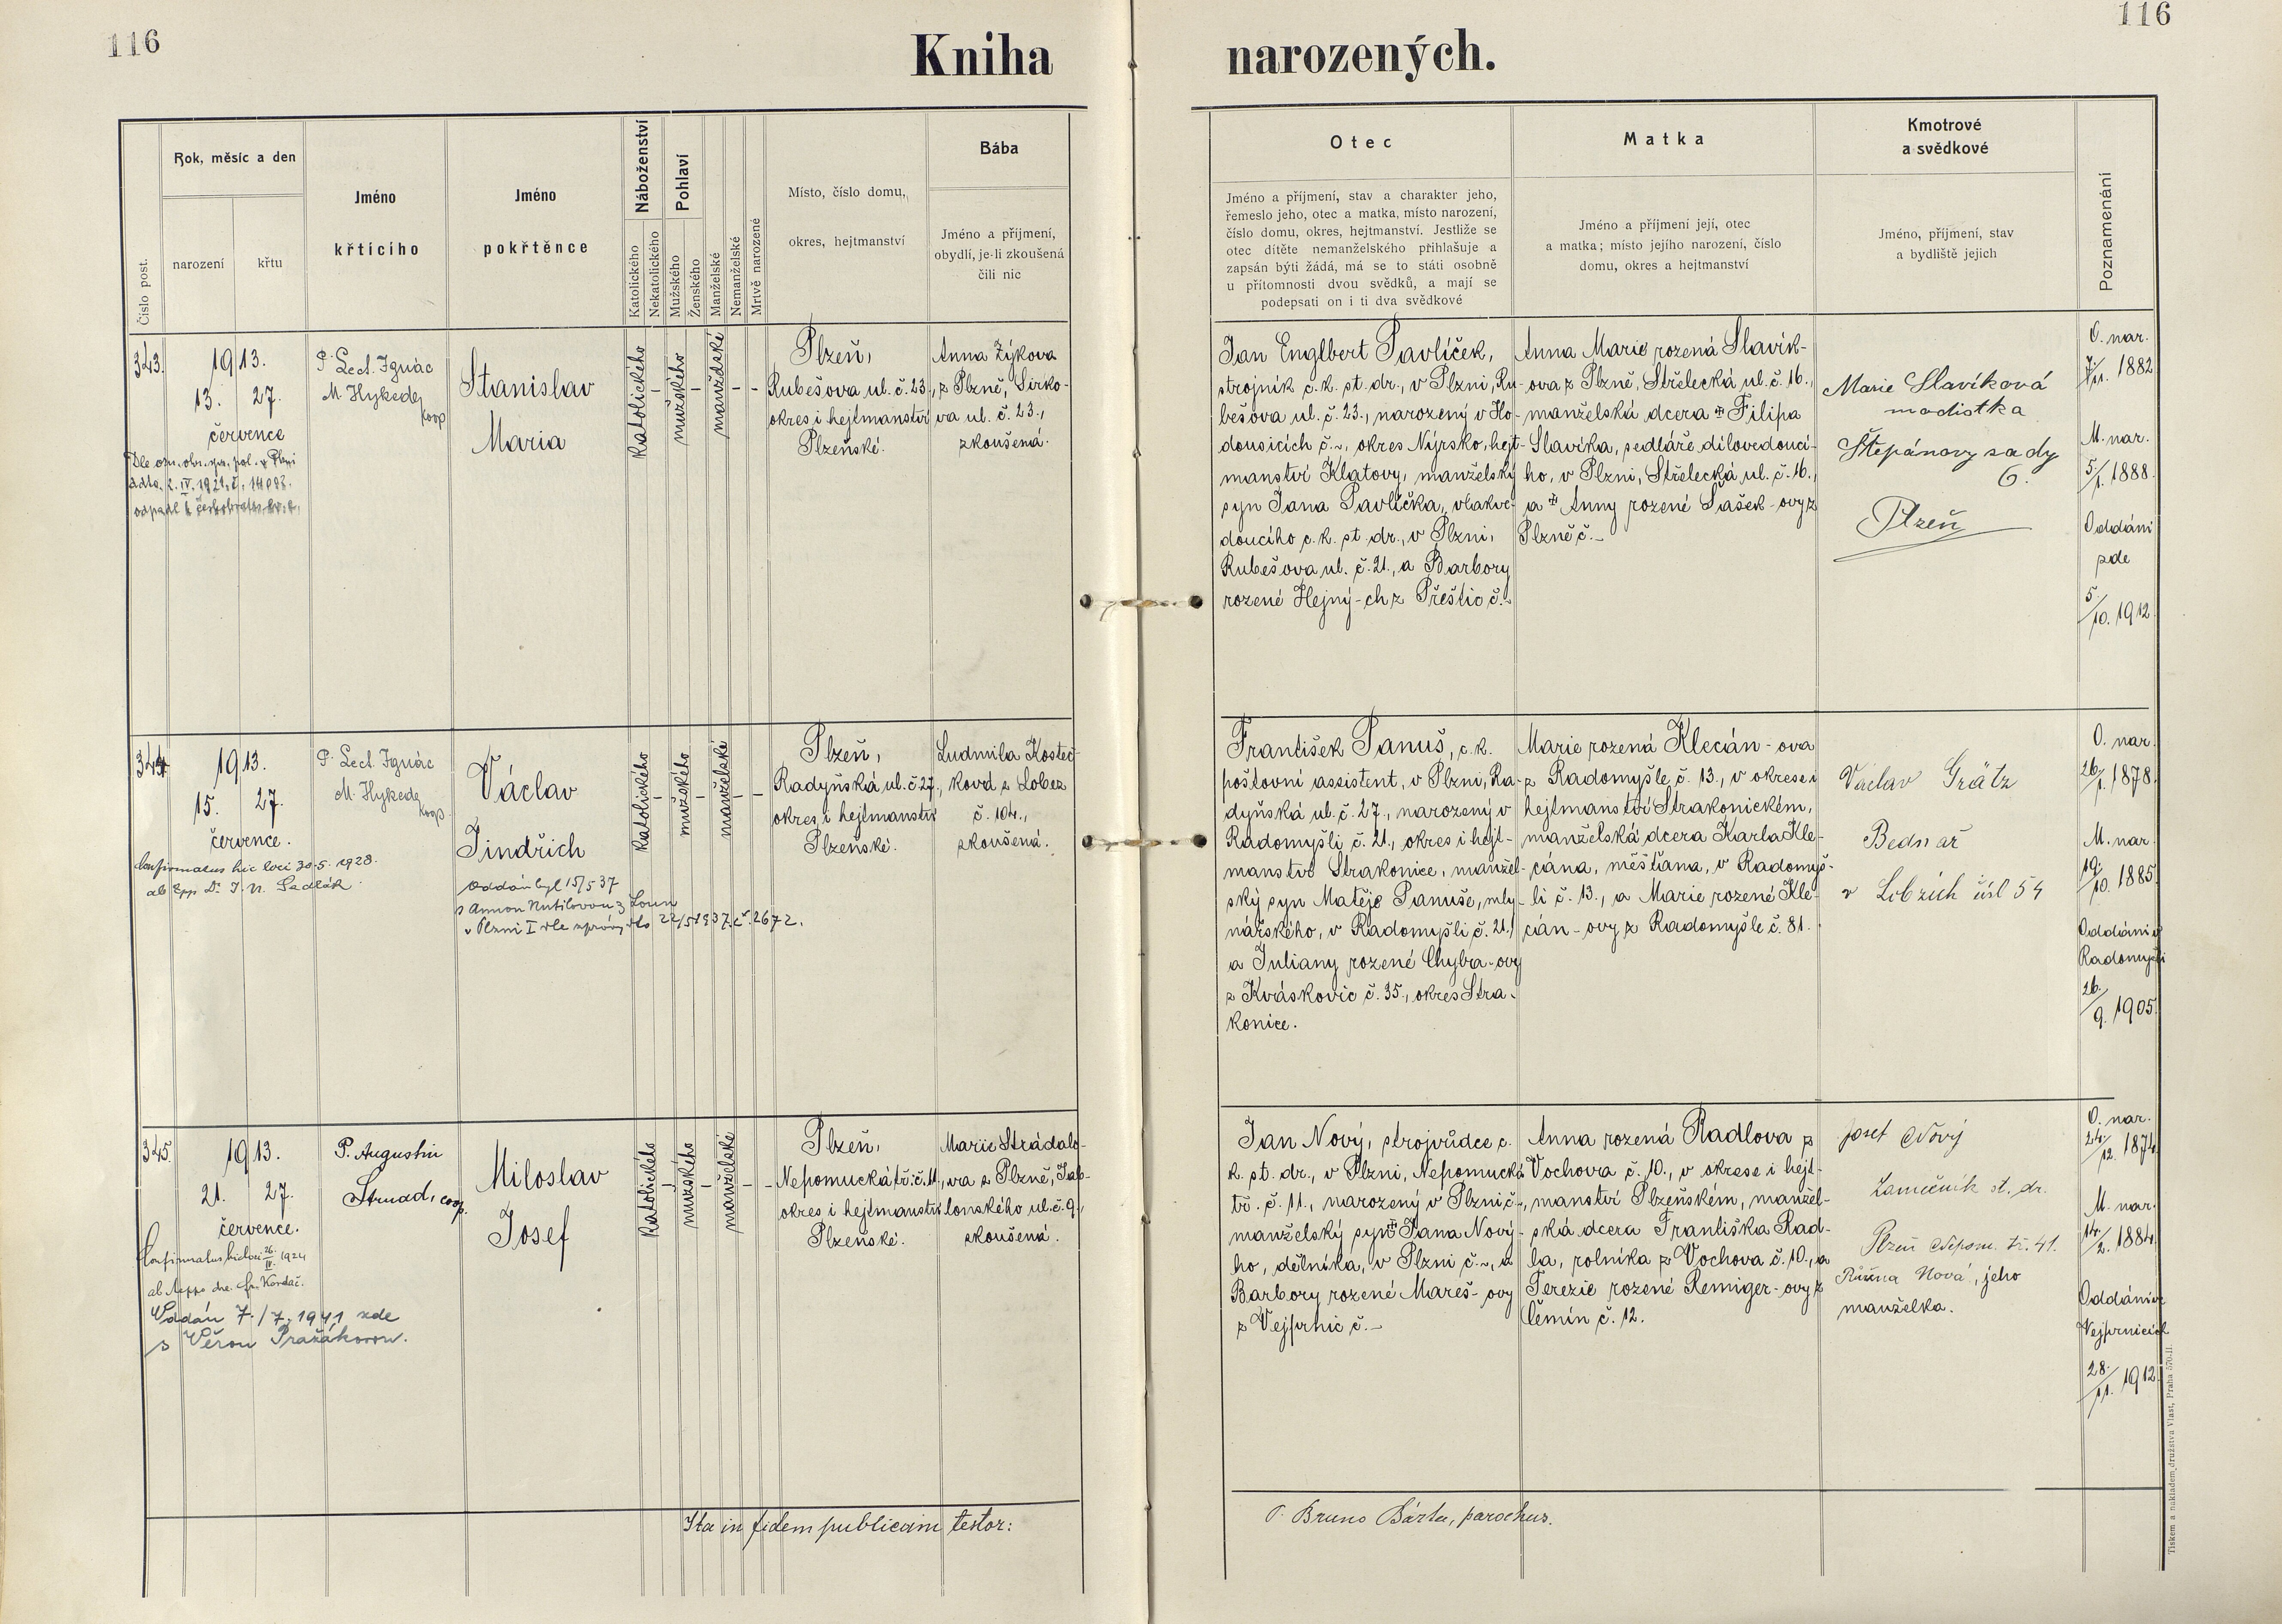 116
116
Kniha narozených.
Číslo post.
Rok, měsíc a den
narození
křtu
Jméno
křtícího
Jméno
pokřtěnce
Náboženství
Katolického
Nekatolického
Pohlaví
Mužského
Ženského
Manželské
Nemanželské
Mrtvě narozené
Místo, číslo domu,
okres, hejtmanství
Bába
Jméno a příjmení,
obydlí, je-li zkoušená
čili nic
Otec
Jméno a příjmení, stav a charakter jeho,
řemeslo jeho, otec a matka, místo narození,
číslo domu, okres, hejtmanství. Jestliže se
otec dítěte nemanželského přihlašuje a
zapsán býti žádá, má se to státi osobně
u přítomnosti dvou svědků, a mají se
podepsati on i ti dva svědkové
Matka
Jméno a příjmení její, otec
a matka; místo jejího narození, číslo
domu, okres a hejtmanství
Kmotrové
a svědkové
Jméno, příjmení, stav
a bydliště jejich
Poznamenání
343.
1913.
13. 27.
července
Dle osn. obv. spr. pol. v Plzni
odpadl k českobratrs.
P. Lect. Ignác
M. Hykede
koop
Stanislav
Maria
katolického
–
mužského
–
manželské
–
–
Plzeň,
Rubešova ul. č. 23.,
okres i hejtmanství
Plzeňské.
Anna Zýkova
z Plzně, Sirko-
va ul. č. 23.,
zkoušená.
Jan Englbert Pavlíček,
strojník c. k. st. dr., v Plzni, Ru-
bešova ul. č. 23., narozený v Ho-
dousicích č. ~, okres Nýrsko, hejt-
manství Klatovy, manželský
syn Jana Pavlíčka, vlakve-
doucího c. k. st. dr., v Plzni,
Rubešova ul. č. 21., a Barbory
rozené Hejný-ch z Přeštic č. ~
Anna Marie rozená Slavík-
ova z Plzně, Střelecká ul. č. 16.,
manželská dcera Filipa
Slavíka, sedláře dílovedoucí-
ho, v Plzni, Střelecká ul. č. 16.,
a Anny rozené Sašek-ovy z
Plzně č. –
Marie Slavíková
modistka
Štěpánovy sady
6.
Plzeň
O. nar.
7/11. 1882
M. nar.
5/1. 1888.
Oddáni
zde
5./10. 1912.
344.
1913.
15. 27.
července.
Confirmatus hic loci 30.5. 1928.
ab Epp. Dr. J. N. Sedlák.
P. Lect. Ignác
M. Hykede
koop.
Václav
Jindřich
Oddán byl 15/5 37
s Annou Nutilovou z Loun
v Plzni I dle zprávy dto 22/5 1937. č. 2672.
katolického
–
mužského
–
manželské
–
–
Plzeň,
Radyňská ul. č. 27.,
okres i hejtmanství
Plzeňské.
Ludmila Kostec-
ková z Lobez
č. 104.,
zkoušená.
František Panuš, c. k.
poštovní assistent, v Plzni, Ra-
dyňská ul. č. 27., narozený v
Radomyšli č. 21., okres i hejt-
manství Strakonice, manžel-
ský syn Matěje Panuše, mly-
nářského, v Radomyšli č. 21.,
a Juliany rozené Chyba-ovy
z Kváskovic č. 35., okres Stra-
konice.
Marie rozená Klecán-ova
z Radomyšle č. 13., v okrese i
hejtmanství Strakonickém,
manželská dcera Karla Kle-
cána, měšťana, v Radomyš-
li č. 13., a Marie rozené Kle-
cán-ovy z Radomyšle č. 81.
Václav Grätz
Bednář
v Lobzích čisl 54
O. nar.
26/1. 1878.
M. nar.
19./10. 1885.
Oddáni v
Radomyšli
26./9. 1905.
345.
1913.
21. 27.
července.
Confirmatus hic loci 26./IV. 1924
ab Aeppo dre. Fr. Kordač.
Oddán 7./7. 1941 zde
s Věrou Pražákovou.
P. Augustin
Strnad, coop.
Miloslav
Josef
katolického
–
mužského
–
manželské
–
–
Plzeň,
Nepomucká tř. č. 11.,
okres i hejtmanství
Plzeňské.
Marie Strádalo-
va z Plzně, Jab-
lonského ul. č. 9.,
zkoušená.
Jan Nový, strojvůdce c.
k. st. dr., v Plzni, Nepomucká
tř. č. 11., narozený v Plzni č. ~,
manželský syn Jana Nový-
ho, dělníka, v Plzni č. ~, a
Barbory rozené Mareš-ovy
z Vejprnic č. –
Anna rozená Radlova z
Vochova č. 10., v okrese i hejt-
manství Plzeňském, manžel-
ská dcera Františka Rad-
la, rolníka z Vochova č. 10., a
Terezie rozené Remiger-ovy z
Čemín č. 12.
Josef Nový
Zamečník st. dr.
Plzeň Nepom. tř. 41.
Růžena Nová, jeho
manželka.
O. nar.
24./12. 1874.
M. nar.
14./2. 1884.
Oddáni ve
Vejprnicích
28./11. 1912.
Ita in fidem publicam testor:
P. Bruno Bárta, parochus.
Tiskem a nakladem družstva Vlast, Praha 570-II.